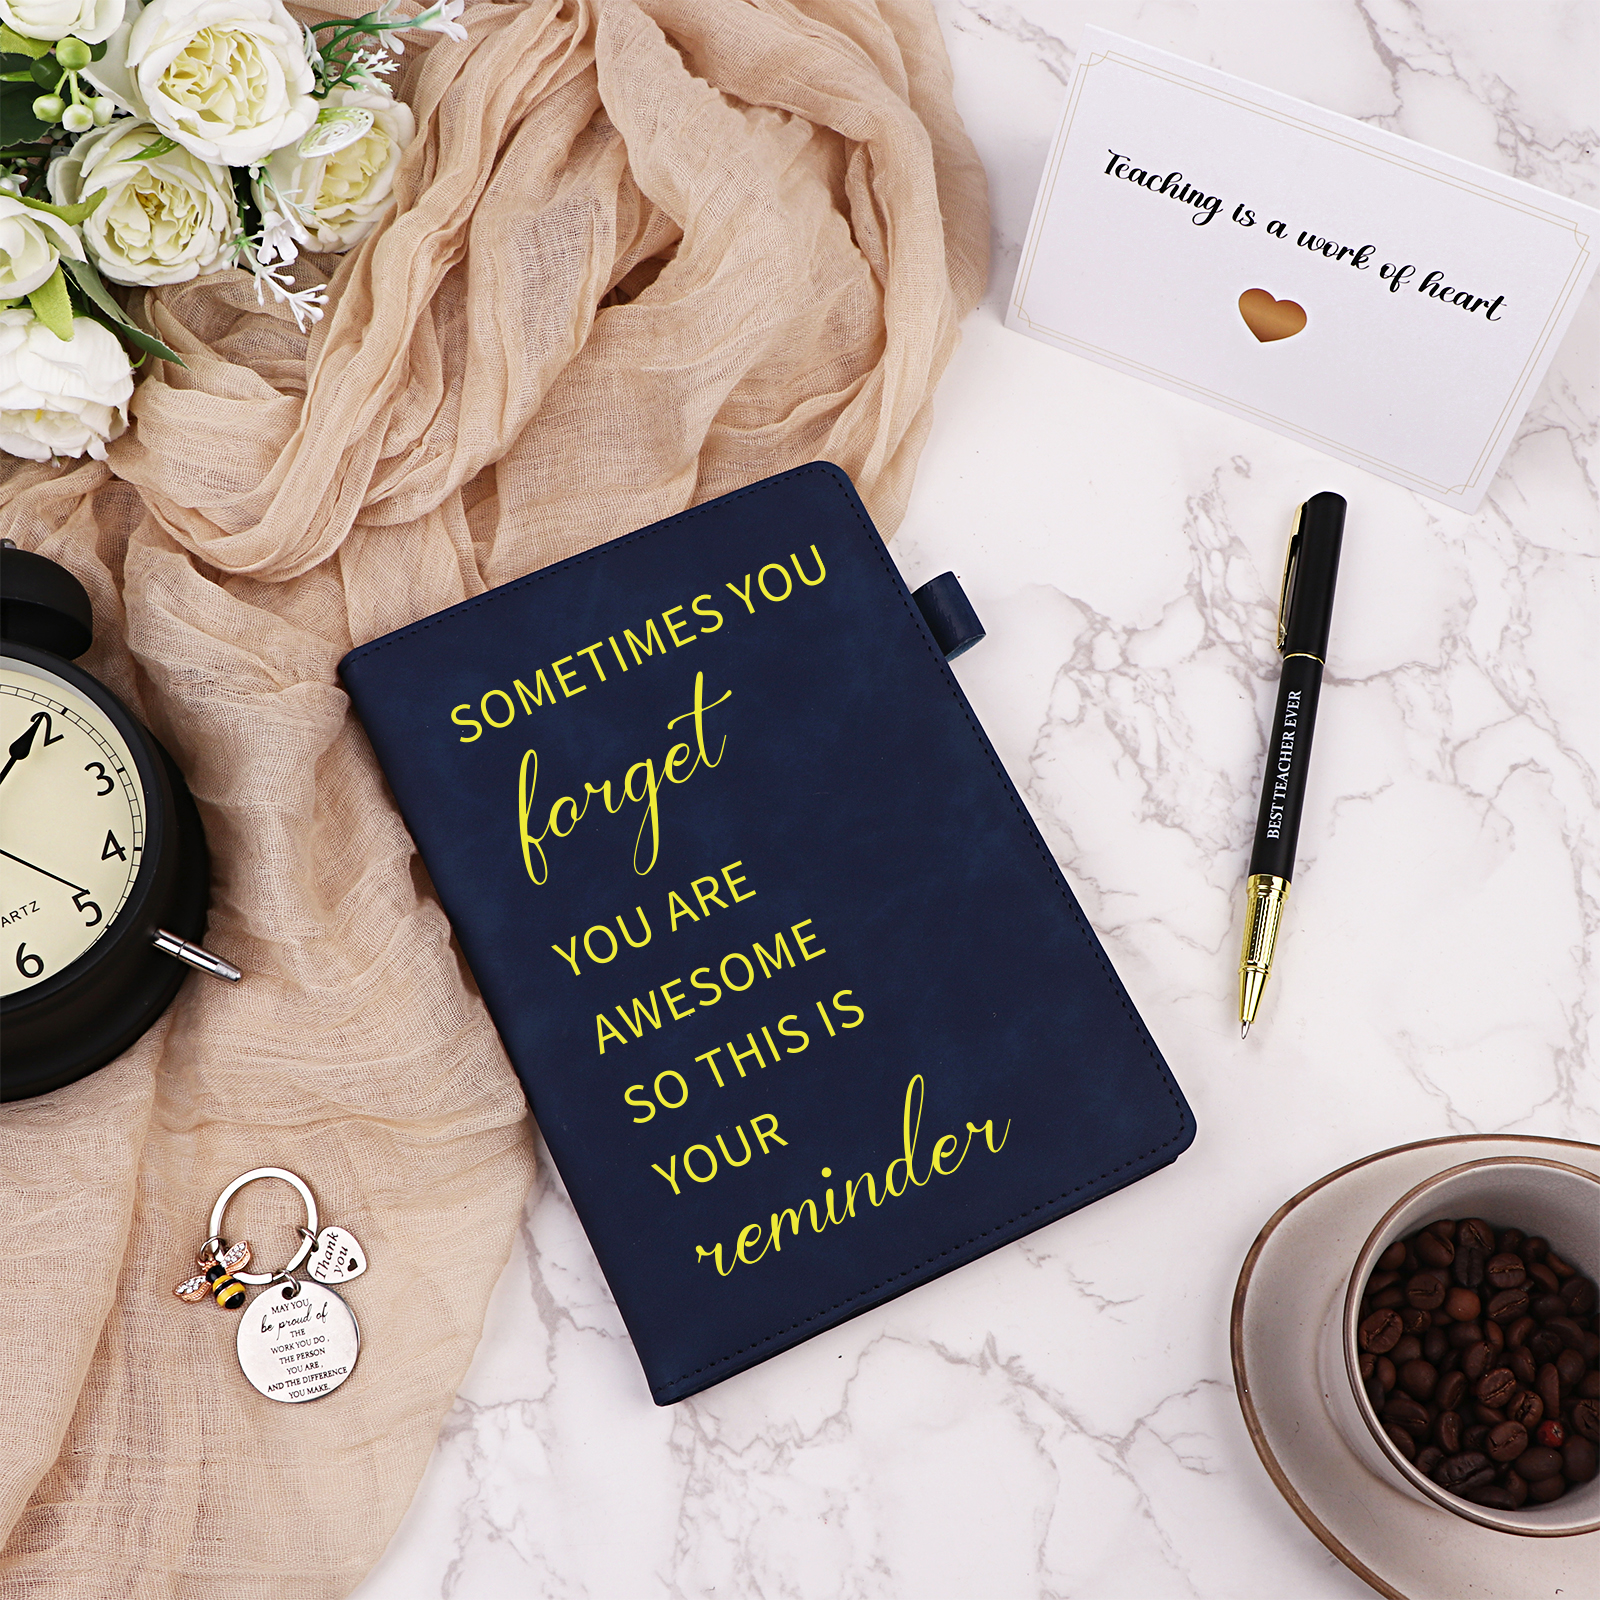 Teaching is a work of heart
SOMETIMES YOU
forget
YOU ARE
AWESOME
SO THIS IS
YOUR
reminder
BEST TEACHER EVER
2
3
4
5
6
ARTZ
Thank
you
MAY YOU
be proud of
THE
WORK YOU DO,
THE PERSON
YOU ARE,
AND THE DIFFERENCE
YOU MAKE.